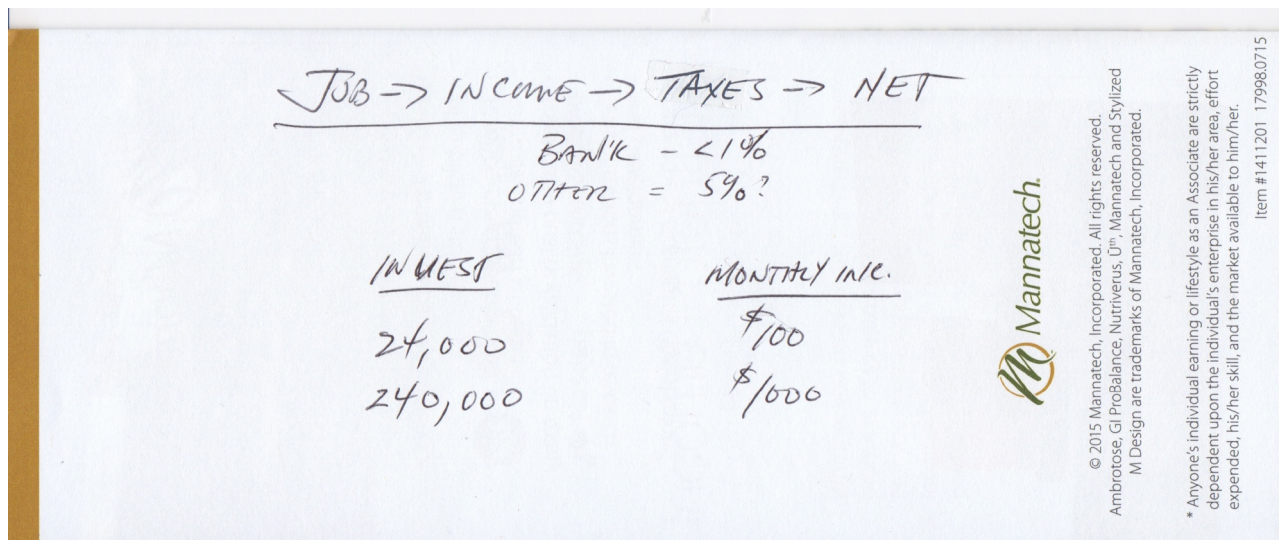 JOB -> INCOME -> TAXES -> NET
BANK - <1%
OTHER = 5%?
INVEST MONTHLY INC.
24,000 $100
240,000 $1000
Mannatech.
© 2015 Mannatech, Incorporated. All rights reserved.
Ambrotose, GI ProBalance, Nutriverus, Ūth, Mannatech and Stylized
M Design are trademarks of Mannatech, Incorporated.
* Anyone's individual earning or lifestyle as an Associate are strictly
dependent upon the individual's enterprise in his/her area, effort
expended, his/her skill, and the market available to him/her.
Item #1411201 17998.0715